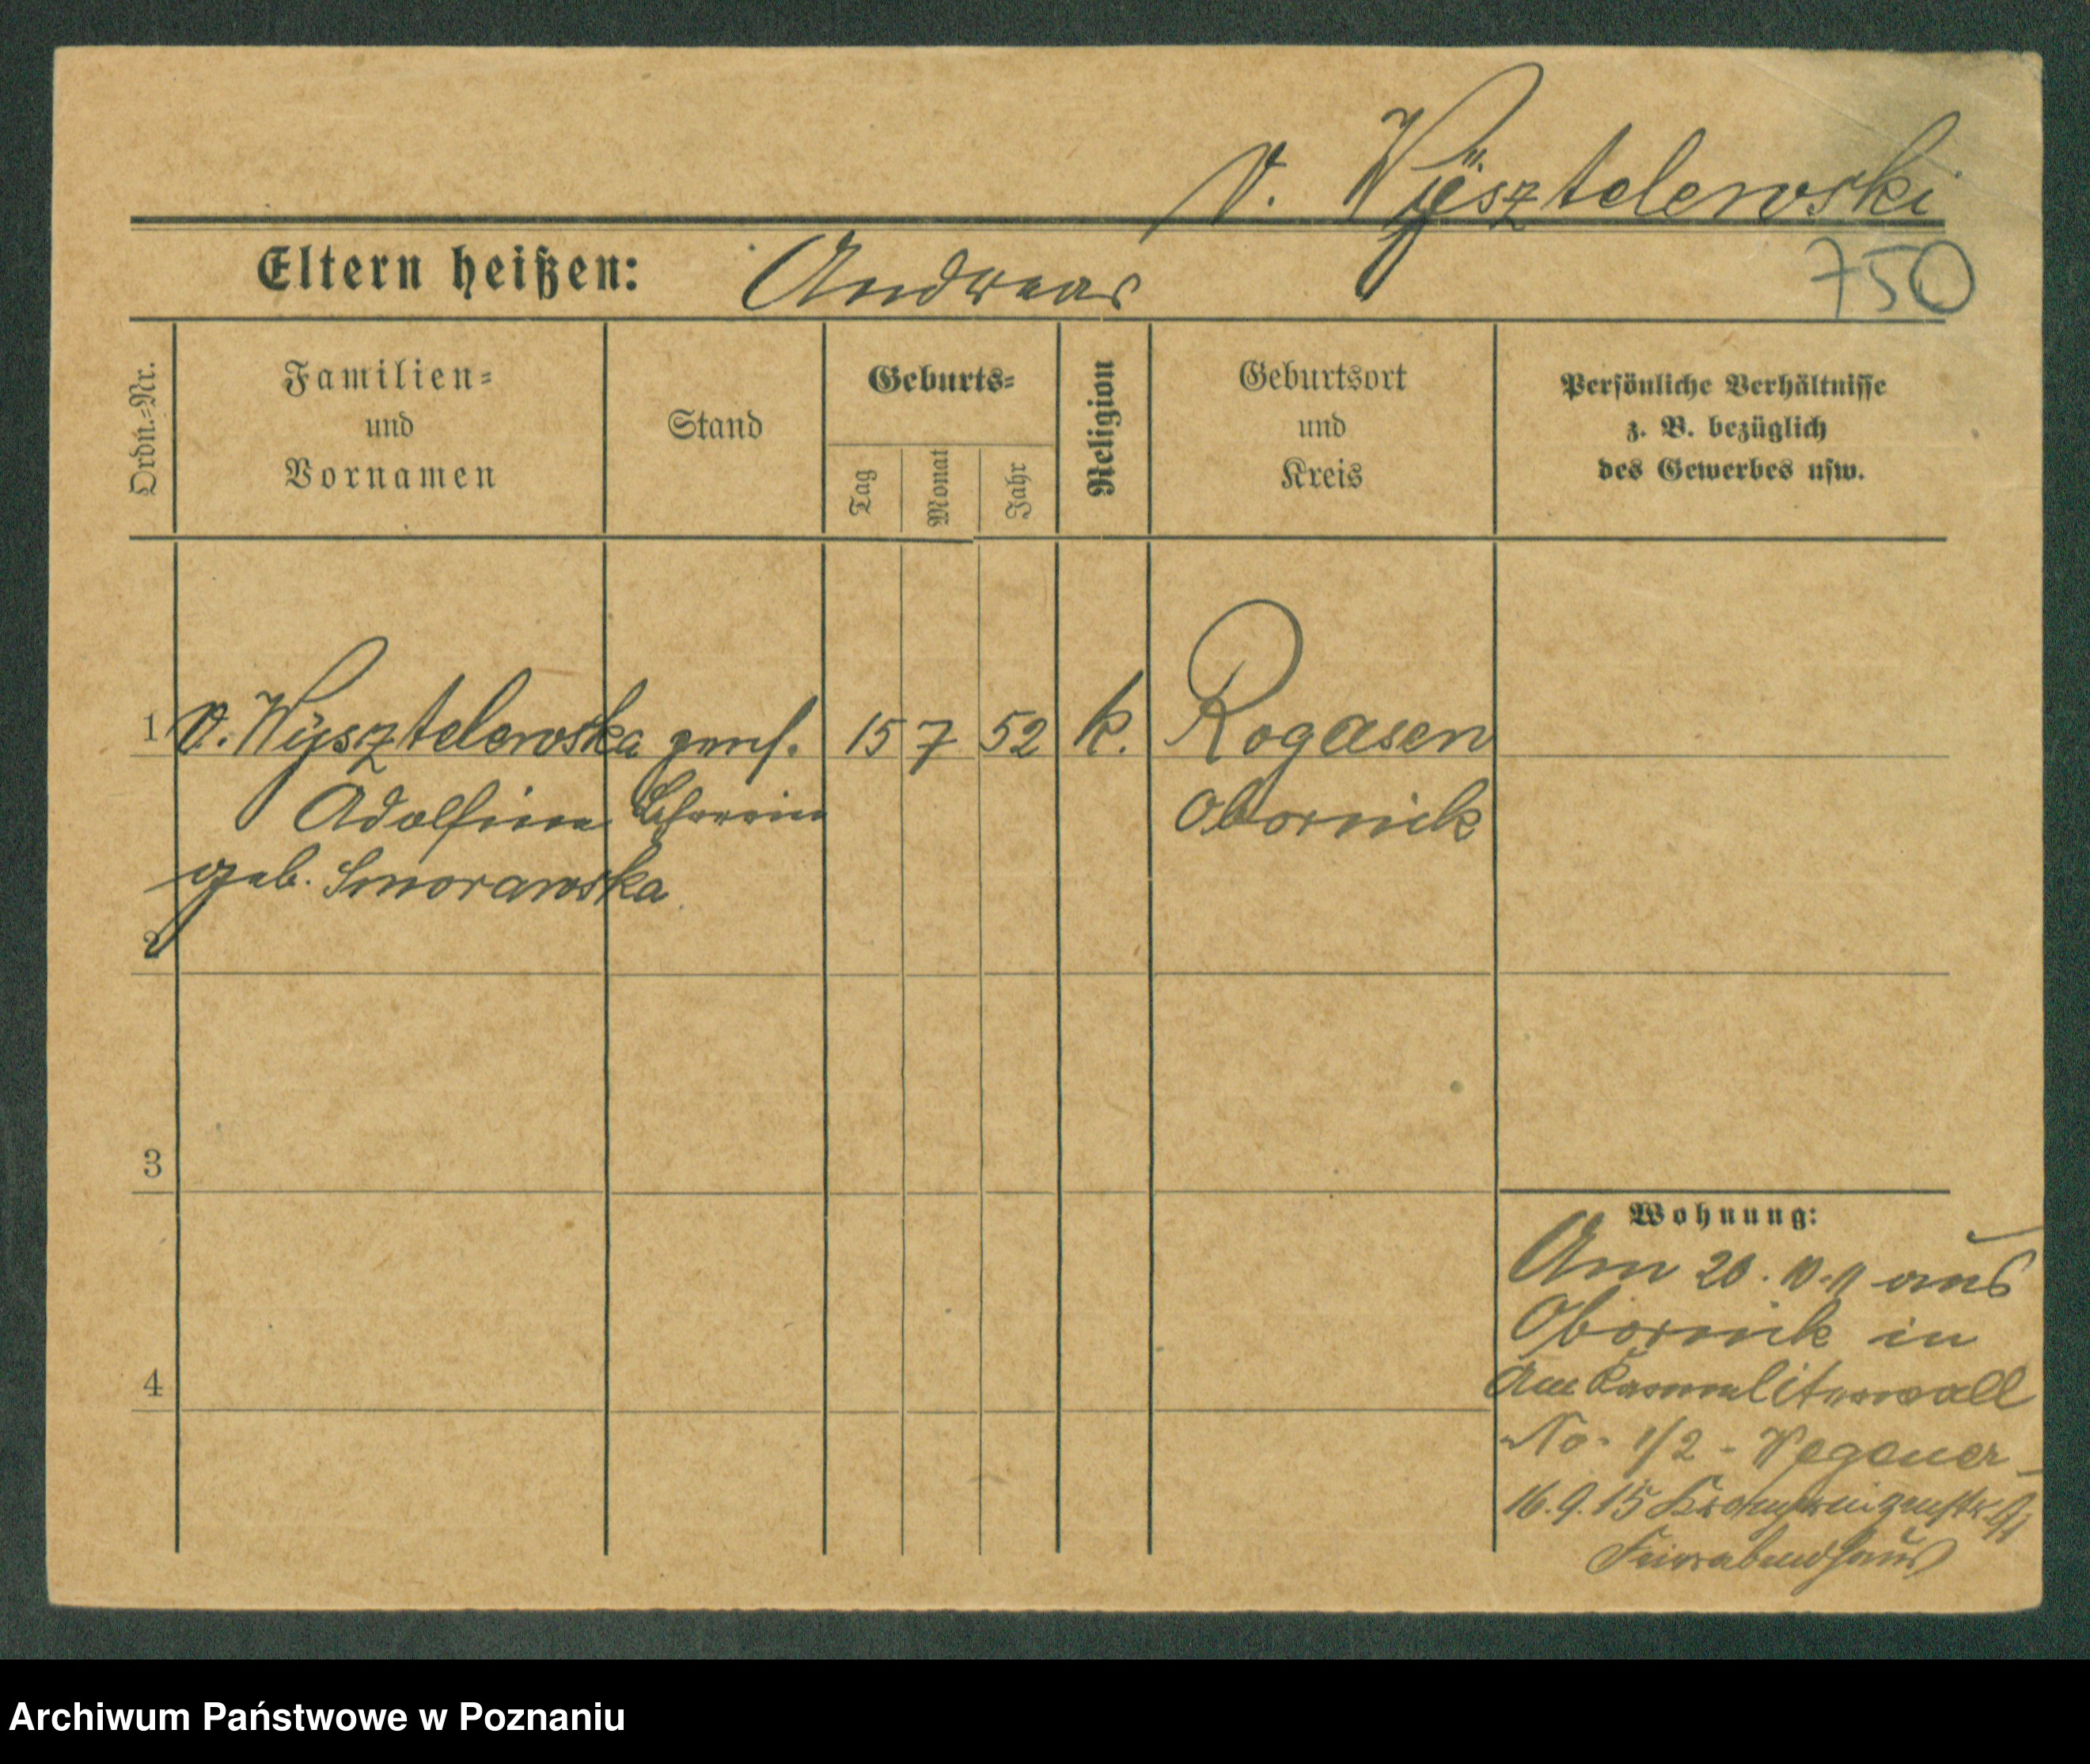 v. Wÿsztelewski
Eltern heißen: Andreas
750
Ordn.=Nr.
Familien=
und
Vornamen
Stand
Geburts=
Tag
Monat
Jahr
Religion
Geburtsort
und
Kreis
Persönliche Verhältnisse
z. B. bezüglich
des Gewerbes usw.
1 v. Wÿsztelewska pens. 15 7 52 k. Rogasen
Adolfine Lehrerin Obornik
geb. Smorawska
2
3
4
Wohnung:
Am 20.10.11 aus
Obornik in
Am Karmeliterwall
No. 1/2 - Wegener -
16.9.15 Kronprinzenstr.
Feierabendhaus
Archiwum Państwowe w Poznaniu